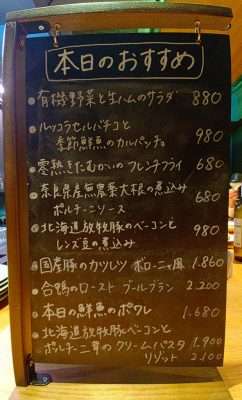 本日のおすすめ
有機野菜と生ハムのサラダ 880
ルッコラセルバチコと
季節鮮魚のカルパッチョ 980
雪熟きたむかいのフレンチフライ 680
奈良県産無農薬大根の煮込み
ポルチーニソース 680
北海道放牧豚のベーコンと
レンズ豆の煮込み 980
国産豚のカツレツ ボローニャ風 1.860
合鴨のロースト ブールブラン 2.200
本日の鮮魚のポワレ 1.680
北海道放牧豚のベーコンと
ポルチーニ茸のクリームパスタ 1.900
リゾット 2.100